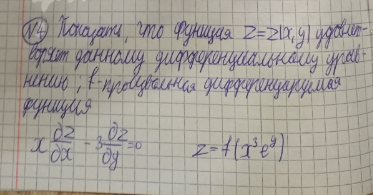 №4 Показать, что функция z=z(x,y) удовлет-
воряет данному дифференциальному урав-
нению; f-произвольная дифференцируемая
функция
x ∂z/∂x - 3 ∂z/∂y =0 z=f(x³e^y)